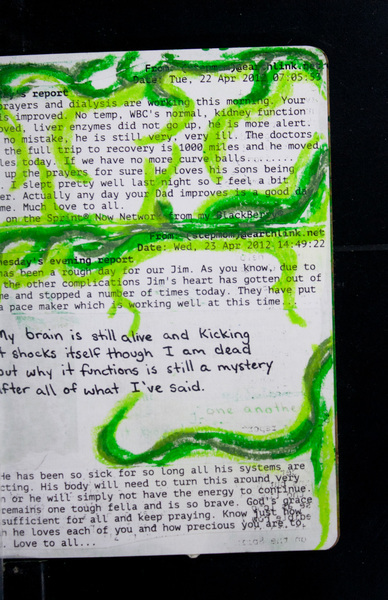 From: (stepmom)@earthlink.net
Date: Tue, 22 Apr 2012 07:05:53
report
prayers and dialysis are working this morning. Your
is improved. No temp, WBC's normal, kidney function
oved, liver enzymes did not go up, he is more alert.
no mistake, he is still very, very ill. The doctors
the full trip to recovery is 1000 miles and he moved
les today. If we have no more curve balls........
up the prayers for sure. He loves his sons being
slept pretty well last night so I feel a bit
er. Actually any day your Dad improves is a good da
me. Much love to all.
on the Sprint® Now Network from my BlackBer
From: (stepmom)@earthlink.net
Date: Wed, 23 Apr 2012 14:49:22
nesday's evening report
has been a rough day for our Jim. As you know, due to
the other complications Jim's heart has gotten out of
me and stopped a number of times today. They have put
a pace maker which is working well at this time...
My brain is still alive and kicking
t shocks itself though I am dead
but why it functions is still a mystery
after all of what I've said.
one another
He has been so sick for so long all his systems are
cting. His body will need to turn this around very
n or he will simply not have the energy to continue.
remains one tough fella and is so brave. God's grace
sufficient for all and keep praying. Know just how
h he loves each of you and how precious you are to
. Love to all...